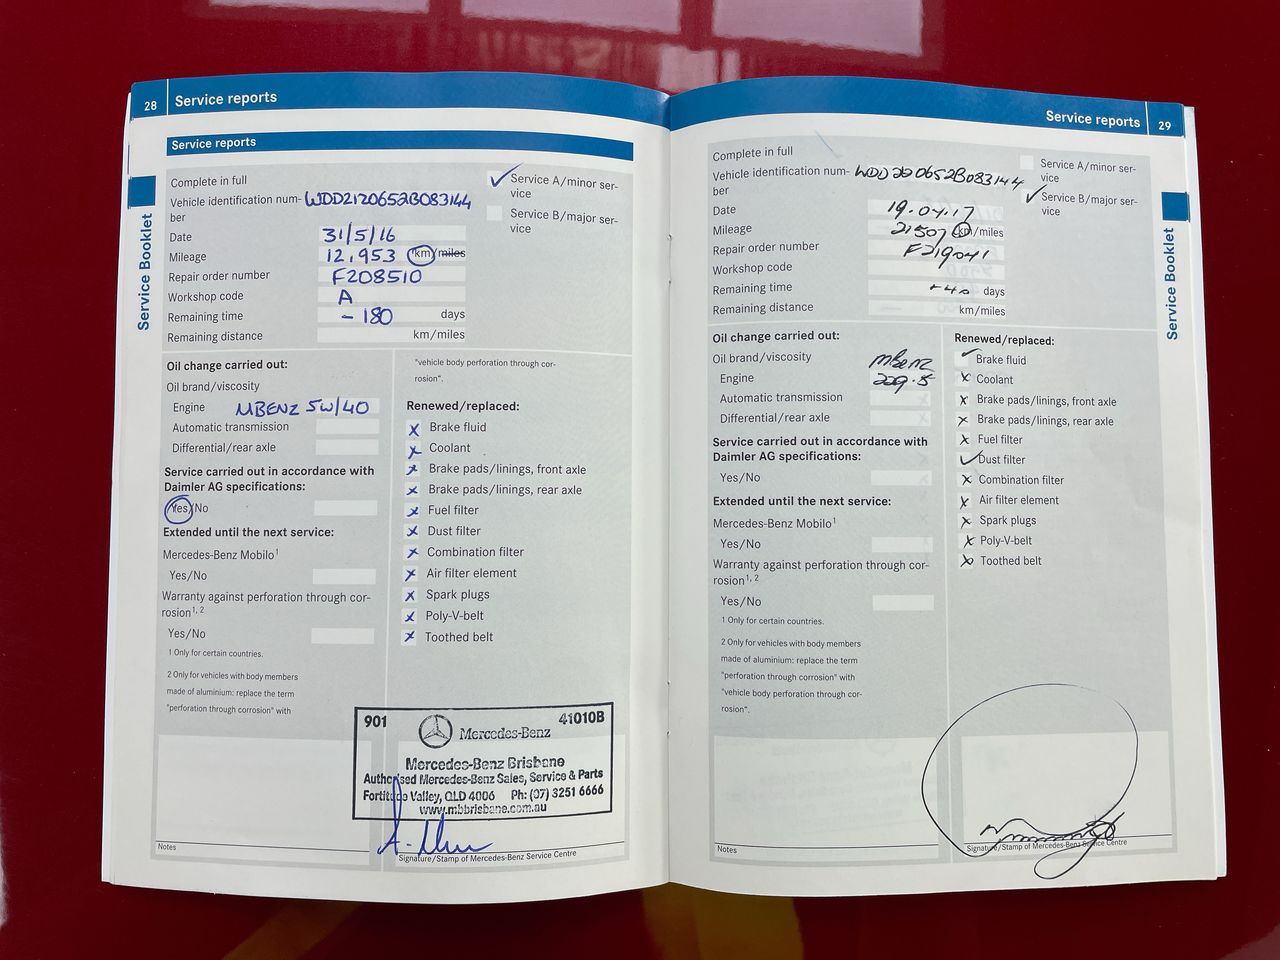 28 Service reports
Service reports
Complete in full
✓ Service A/minor ser-
vice
Vehicle identification num-
ber WDD2120652B083144
Service B/major ser-
vice
Date 31/5/16
Mileage 12,953 km/miles
Repair order number F208510
Workshop code A
Remaining time - 180 days
Remaining distance km/miles
Oil change carried out:
Oil brand/viscosity
Engine MBENZ 5W/40
Automatic transmission
Differential/rear axle
Service carried out in accordance with
Daimler AG specifications:
Yes/No
Extended until the next service:
Mercedes-Benz Mobilo1
Yes/No
Warranty against perforation through cor-
rosion1, 2
Yes/No
1 Only for certain countries.
2 Only for vehicles with body members
made of aluminium: replace the term
"perforation through corrosion" with
"vehicle body perforation through cor-
rosion".
Renewed/replaced:
x Brake fluid
x Coolant
x Brake pads/linings, front axle
x Brake pads/linings, rear axle
x Fuel filter
x Dust filter
x Combination filter
x Air filter element
x Spark plugs
x Poly-V-belt
x Toothed belt
901 41010B
Mercedes-Benz
Mercedes-Benz Brisbane
Authorised Mercedes-Benz Sales, Service & Parts
Fortitude Valley, QLD 4006 Ph: (07) 3251 6666
www.mbbrisbane.com.au
Notes
Signature/Stamp of Mercedes-Benz Service Centre
Service Booklet
Service reports 29
Complete in full
Service A/minor ser-
vice
Vehicle identification num-
ber WDD2120652B083144
✓ Service B/major ser-
vice
Date 19.04.17
Mileage 21507 km/miles
Repair order number F219041
Workshop code
Remaining time -40 days
Remaining distance km/miles
Oil change carried out:
Oil brand/viscosity MBenz
Engine 229.5
Automatic transmission
Differential/rear axle
Service carried out in accordance with
Daimler AG specifications:
Yes/No
Extended until the next service:
Mercedes-Benz Mobilo1
Yes/No
Warranty against perforation through cor-
rosion1, 2
Yes/No
1 Only for certain countries.
2 Only for vehicles with body members
made of aluminium: replace the term
"perforation through corrosion" with
"vehicle body perforation through cor-
rosion".
Renewed/replaced:
✓ Brake fluid
x Coolant
x Brake pads/linings, front axle
x Brake pads/linings, rear axle
x Fuel filter
✓ Dust filter
x Combination filter
x Air filter element
x Spark plugs
x Poly-V-belt
x Toothed belt
Notes
Signature/Stamp of Mercedes-Benz Service Centre
Service Booklet